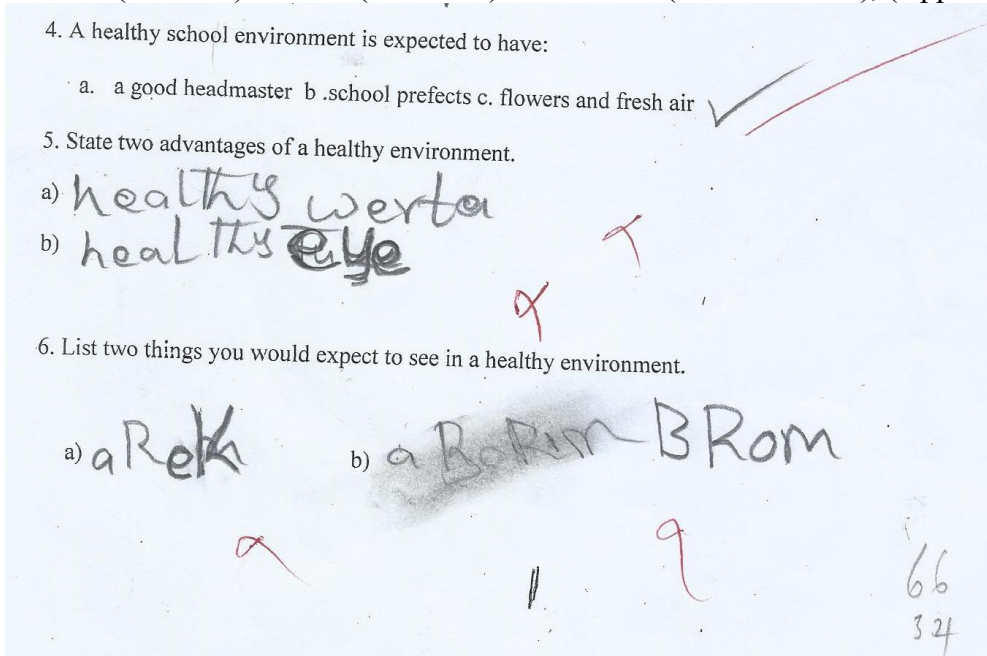 4. A healthy school environment is expected to have:
a. a good headmaster b .school prefects c. flowers and fresh air
5. State two advantages of a healthy environment.
a) healthy werta
b) healthy eye
6. List two things you would expect to see in a healthy environment.
a) a Rek b) a BRom
66
34